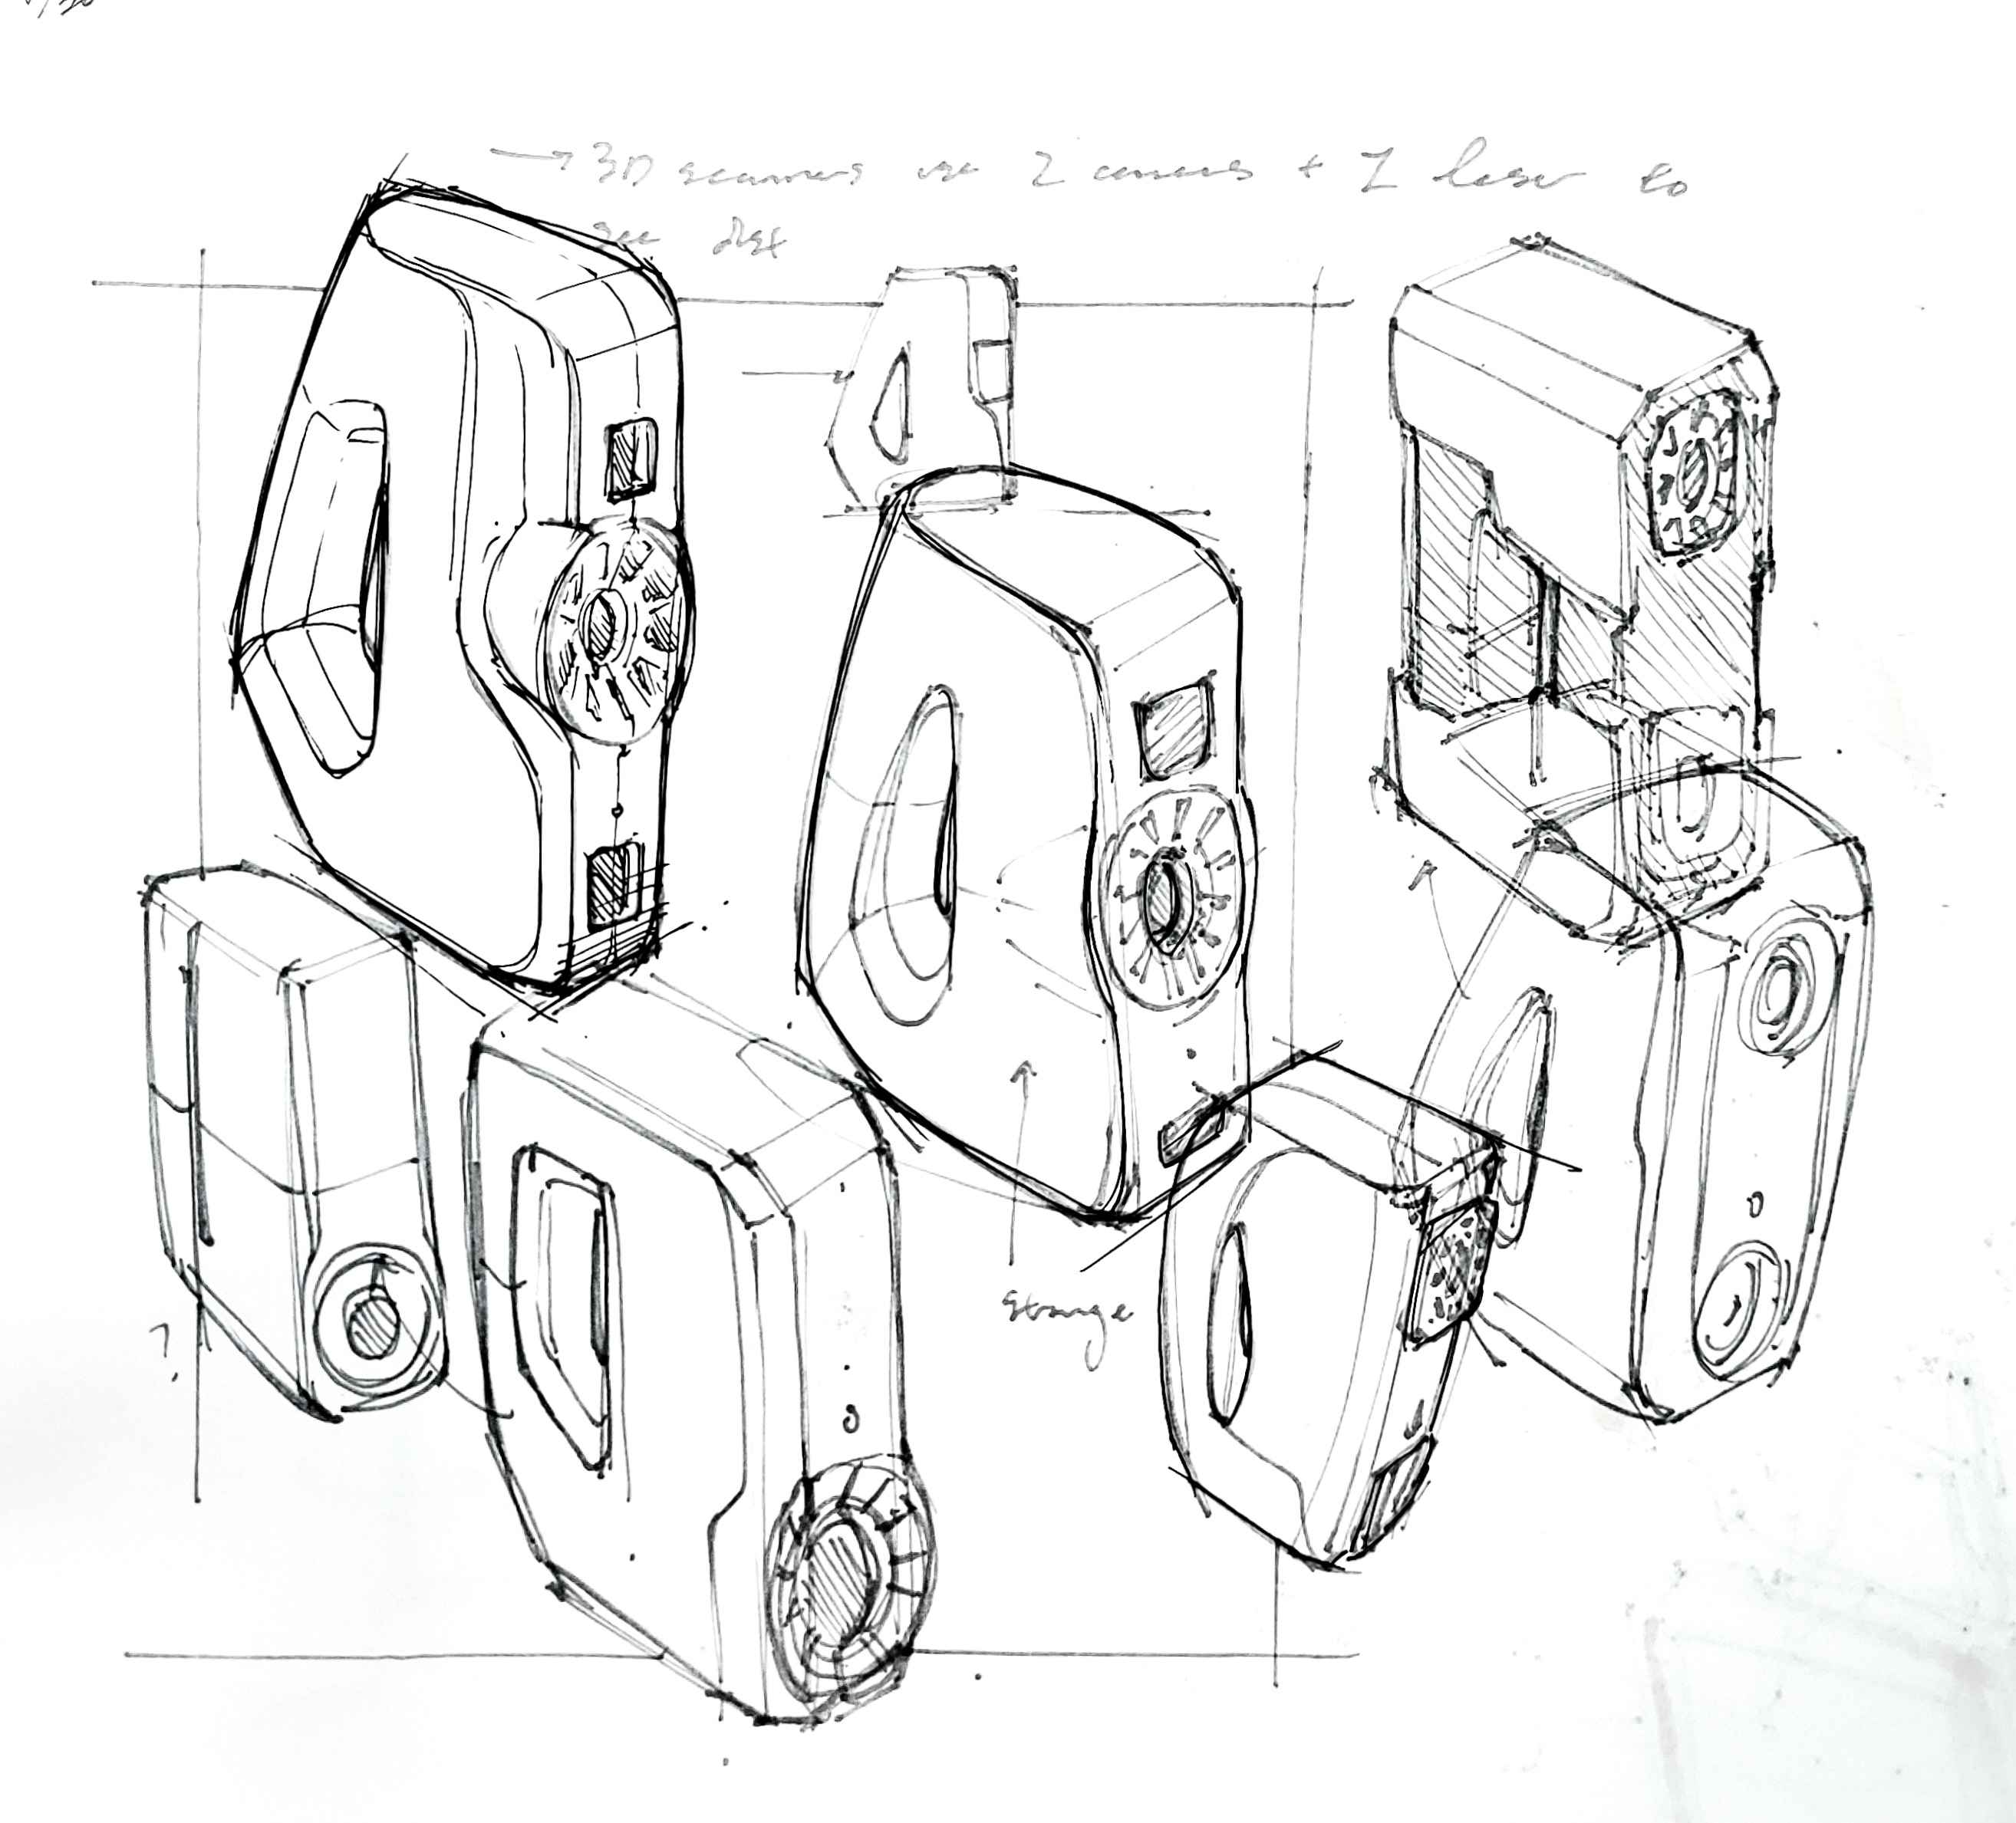 → 3D scanners use 2 cameras + 1 laser to
see dist
strange
?